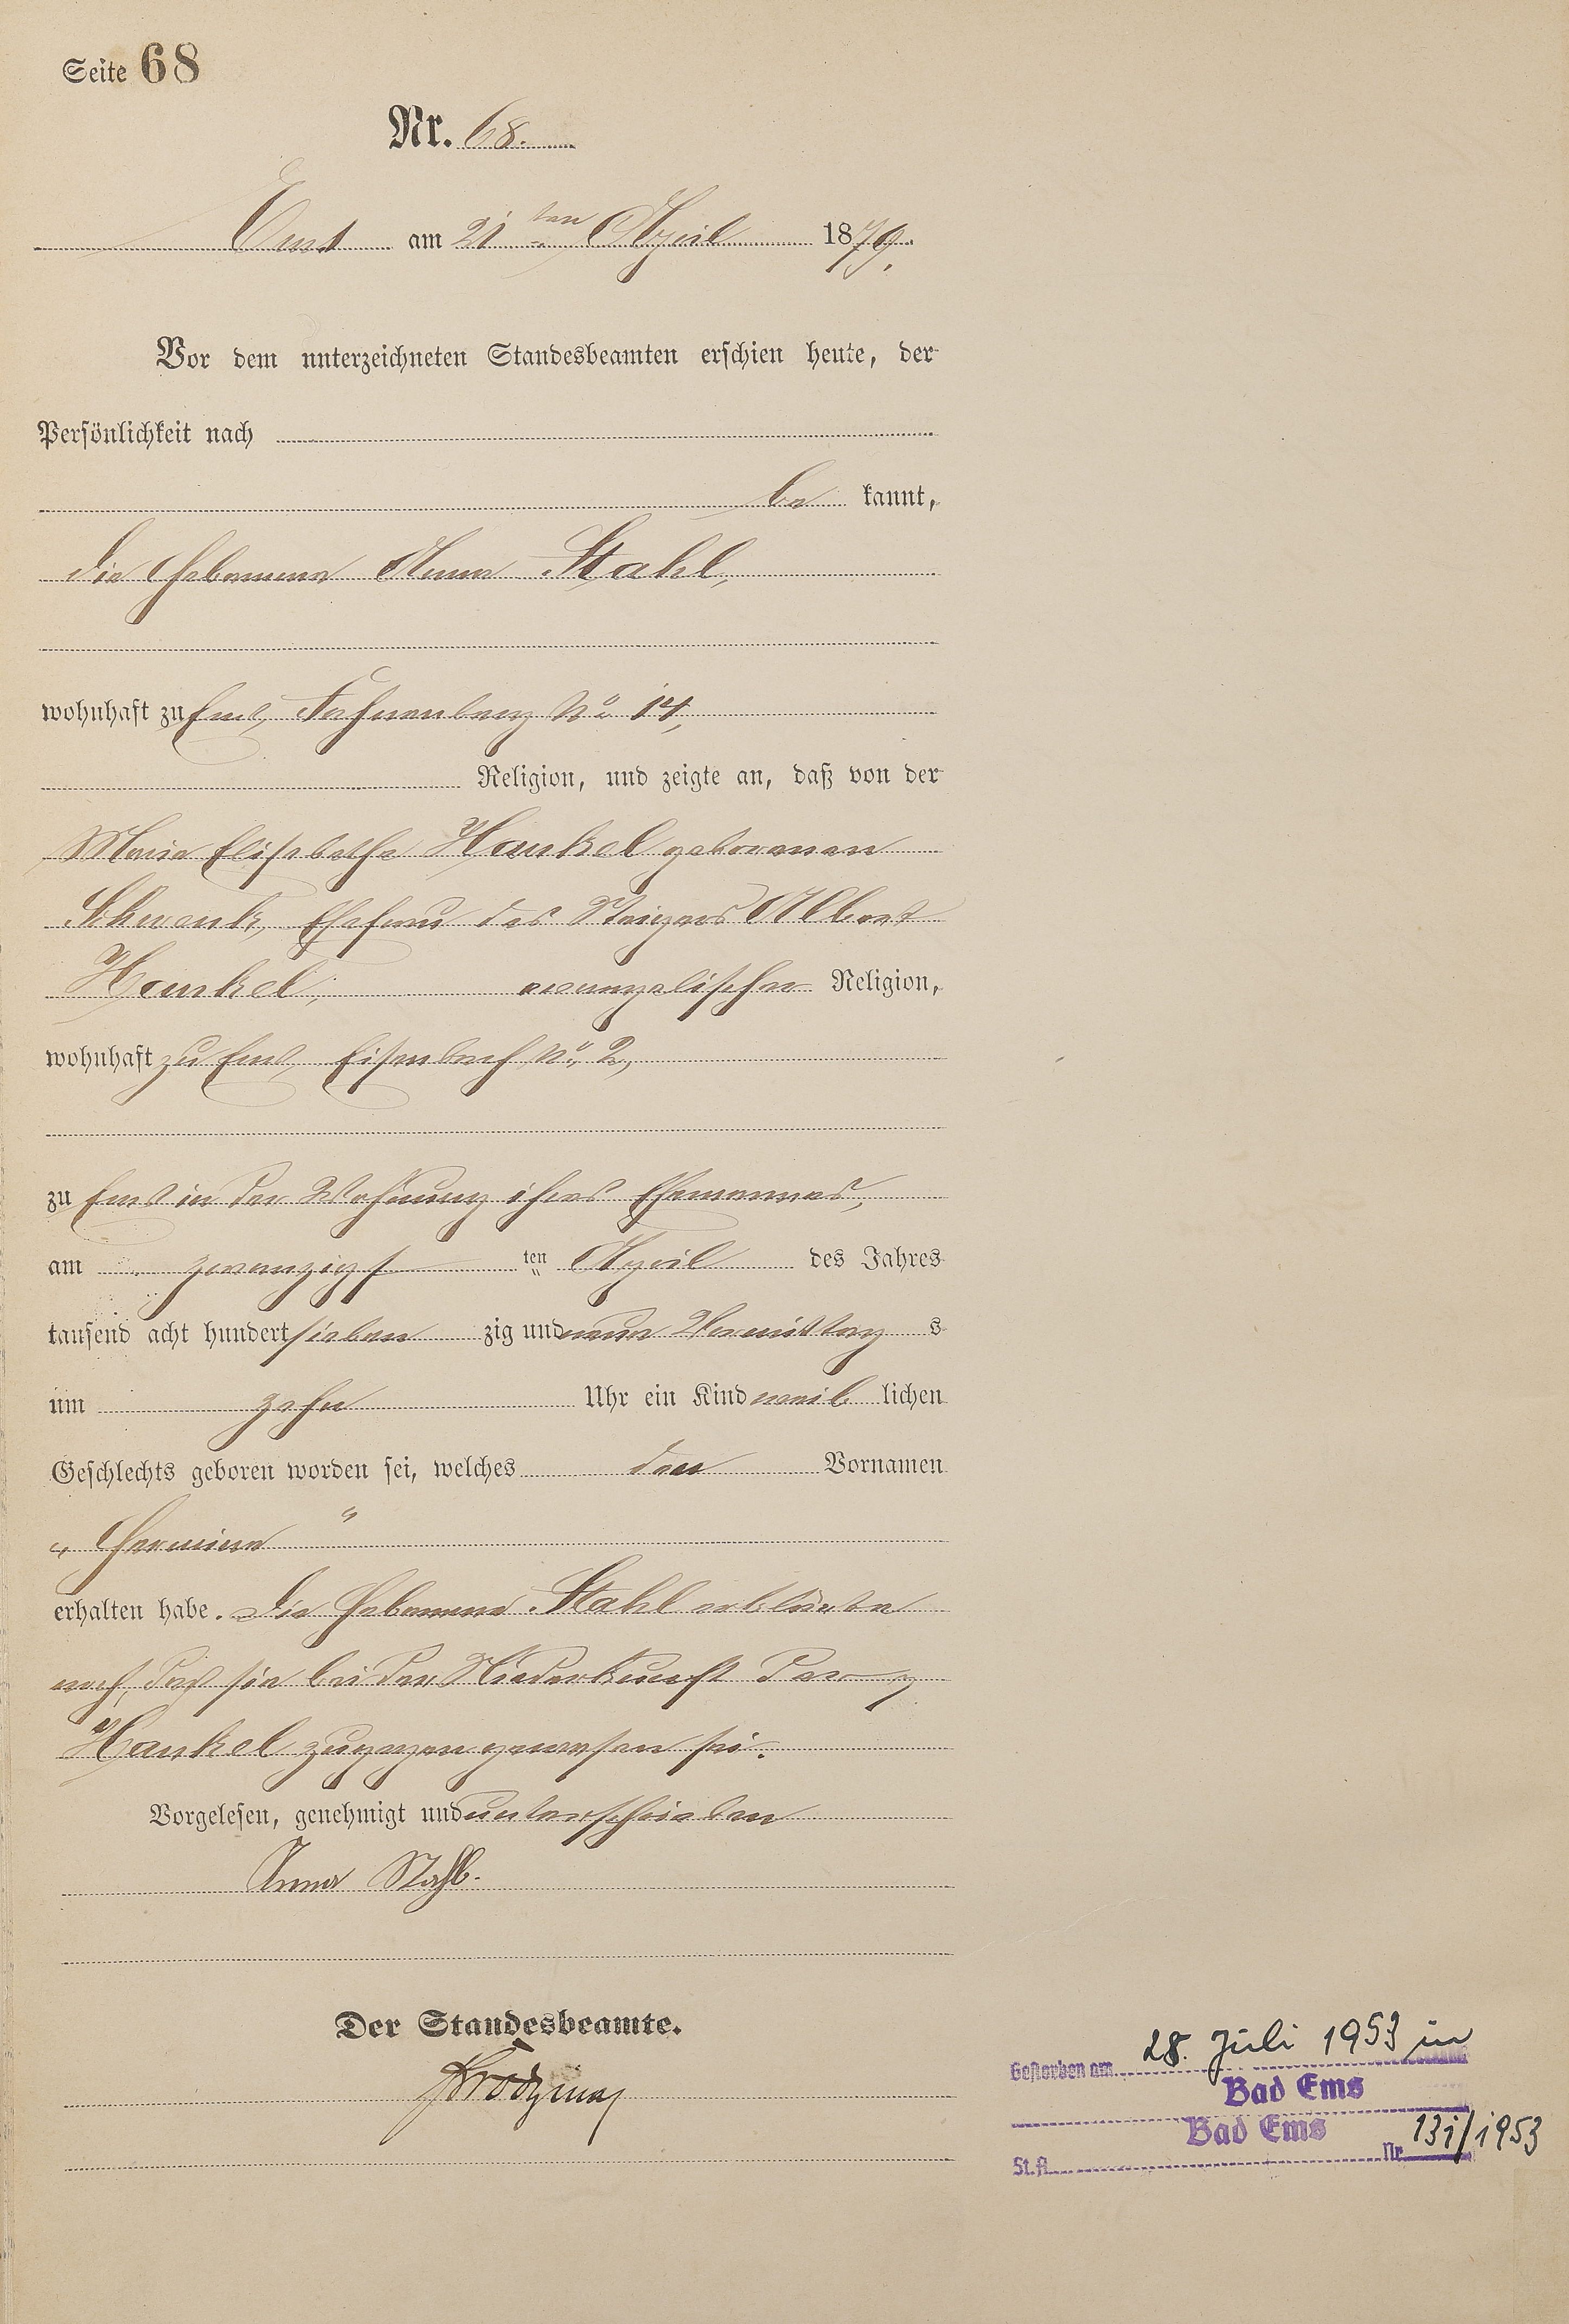 Seite 68
Nr. 68.
Ems am 21ten April 1879.
Vor dem unterzeichneten Standesbeamten erschien heute, der
Persönlichkeit nach
be kannt,
die Hebamme Anna Stahl,
wohnhaft zu Ems, Fahnenberg No. 14,
Religion, und zeigte an, daß von der
Maria Elisabetha Hankel geborenen
Schwenk, Ehefrau des Steigers Albert
Hankel, evangelischer Religion,
wohnhaft zu Ems, Eisenbach No. 2,
zu Ems in der Wohnung ihres Ehemannes,
am zwanzigsten April des Jahres
tausend acht hundert sieben zig und neun Vormittag s
um zehn Uhr ein Kind weib lichen
Geschlechts geboren worden sei, welches den Vornamen
„Hermine“
erhalten habe. Die Hebamme Stahl erklärte
noch, daß sie bei der Niederkunft der
Hankel zugegen gewesen sei.
Vorgelesen, genehmigt und unterschrieben
Anna Stahl.
Der Standesbeamte.
Gestorben am 28. Juli 1953 in
Bad Ems
Bad Ems
St.A. Nr. 131/1953